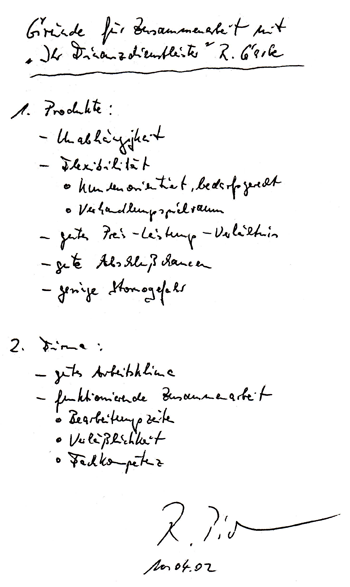 Gründe für Zusammenarbeit mit
„Ihr Finanzdienstleister" R.
1. Produkte:
- Unabhängigkeit
- Flexibilität
• Kundenorientiert, bedarfsgerecht
• Verhandlungsspielraum
- gutes Preis-Leistungs-Verhältnis
- gute Abschlußchancen
- geringe Stornogefahr
2. Firma:
- gutes Arbeitsklima
- funktionierende Zusammenarbeit
• Bearbeitungszeiten
• Verläßlichkeit
• Fachkompetenz
R.
04.02